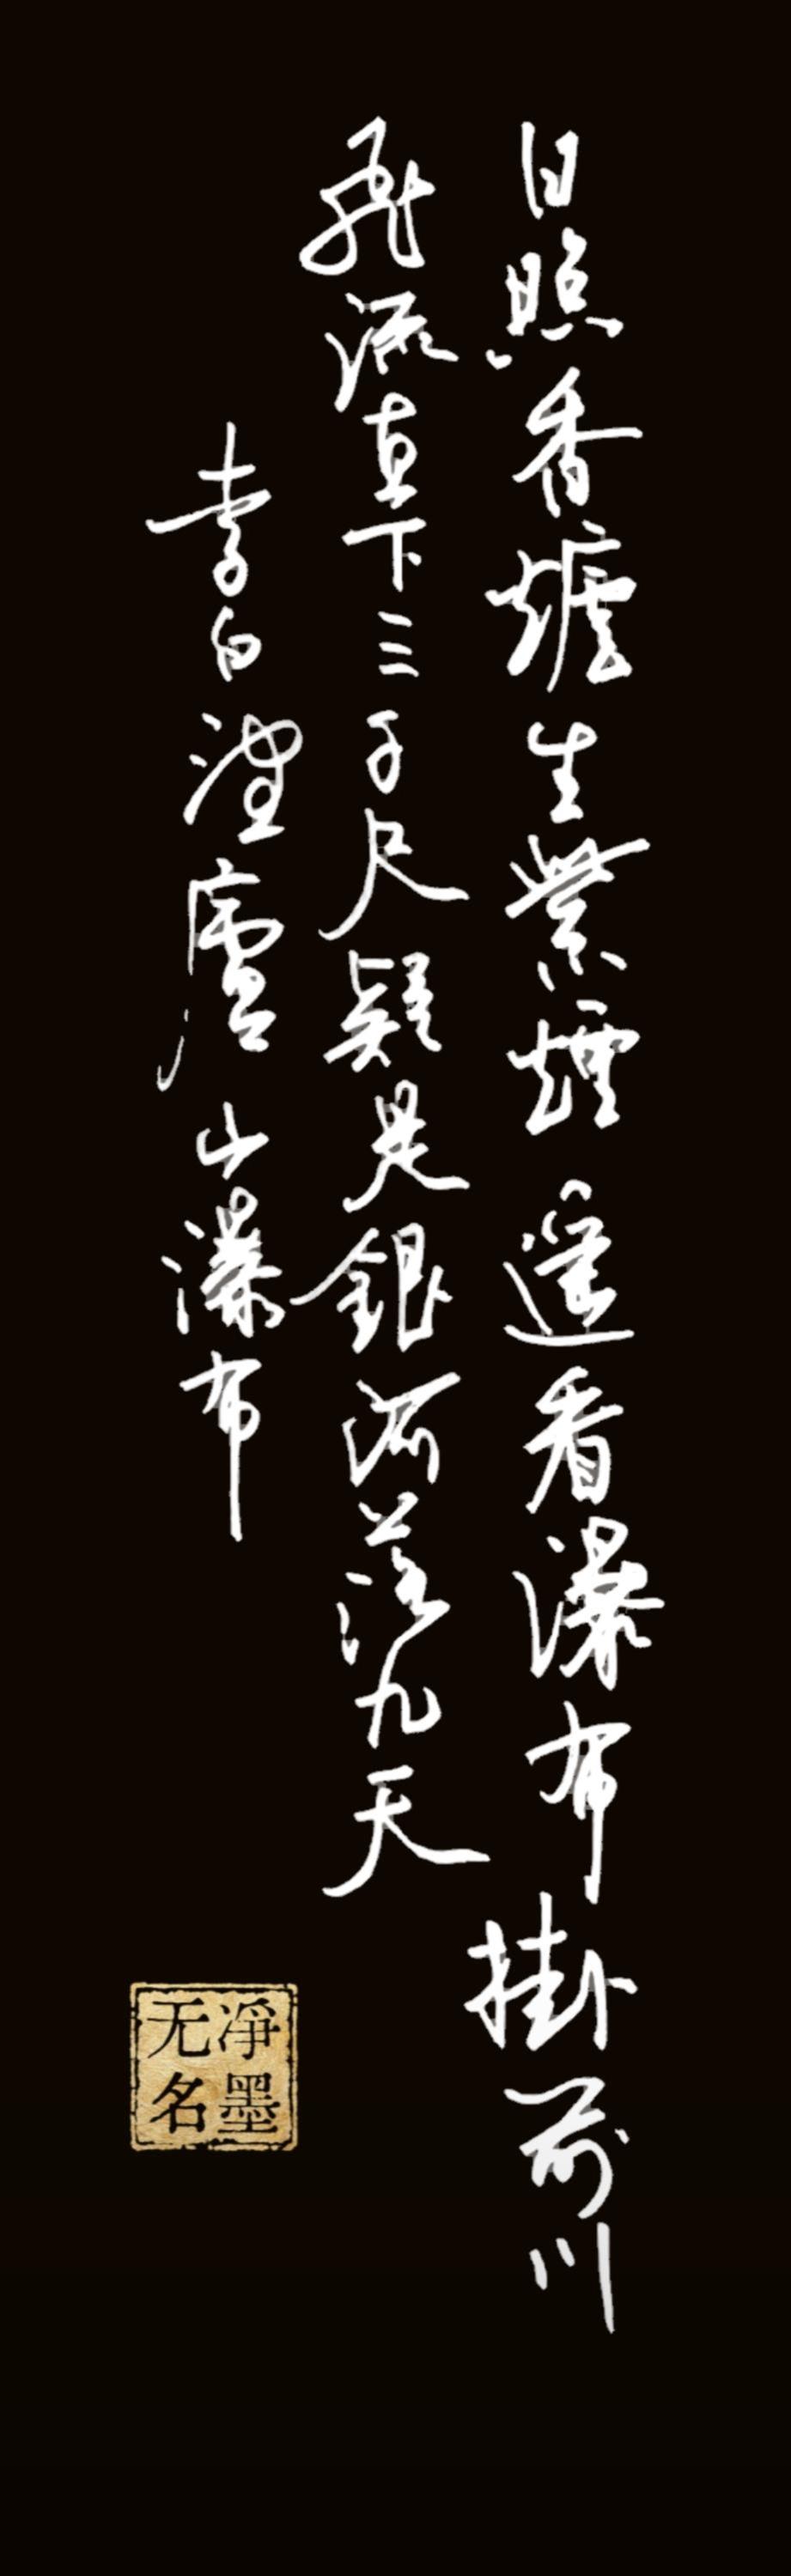 日照香爐生紫煙遙看瀑布掛前川
飛流直下三千尺疑是銀河落九天
李白望廬山瀑布
凈墨
无名